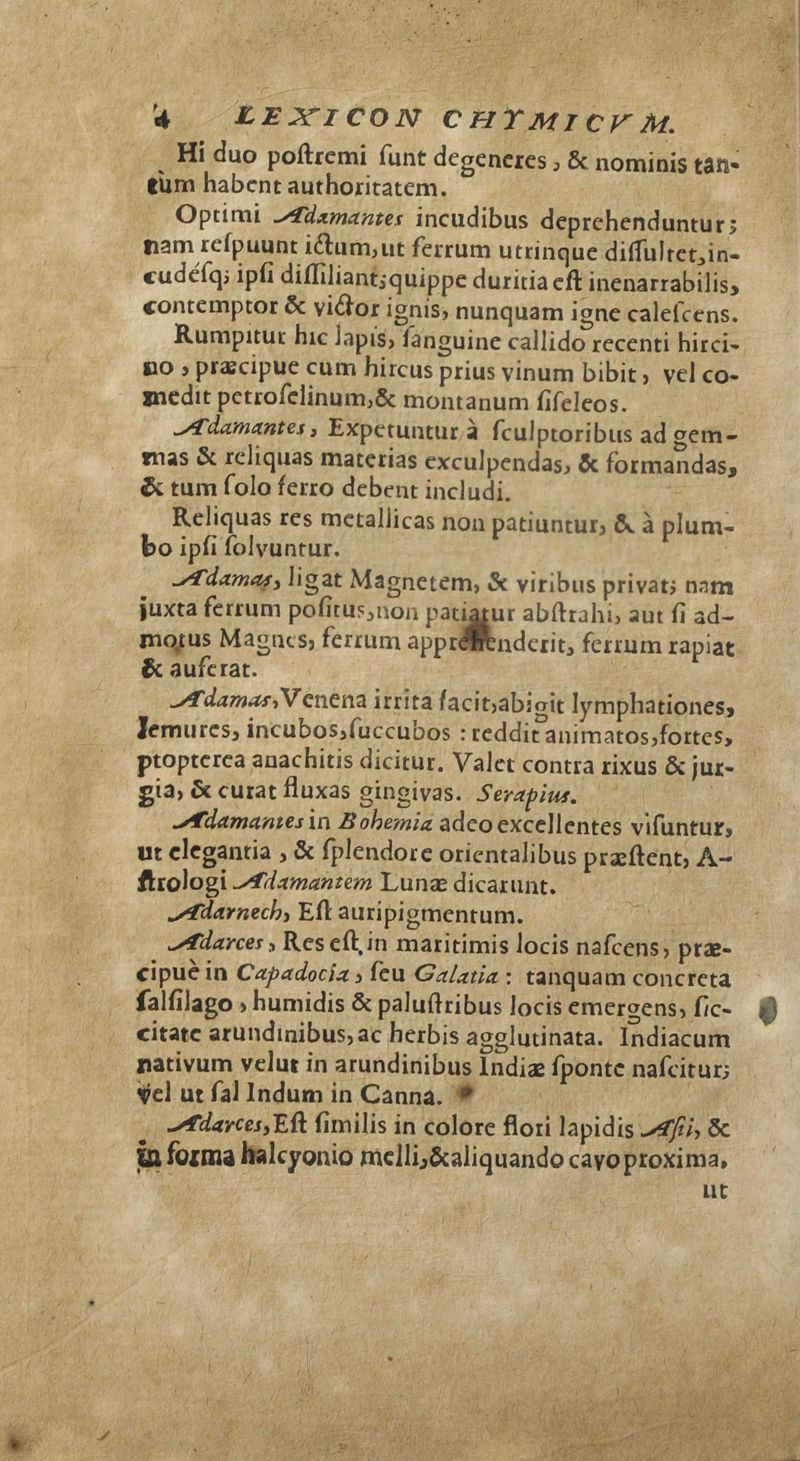 4 LEXICON CHYMICVM.
Hi duo poſtremi ſunt degeneres, & nominis tan-
tùm habent authoritatem.
Optimi Adamantes incudibus deprehenduntur;
nam reſpuunt ictum, ut ferrum utrinque diſſultet, in-
cudéſq; ipſi diſſiliant; quippe duritia eſt inenarrabilis,
contemptor & victor ignis, nunquam igne caleſcens.
Rumpitur hic lapis, ſanguine callido recenti hirci-
no, præcipue cum hircus prius vinum bibit, vel co-
medit petroſelinum, & montanum ſiſeleos.
Adamantes, Expetuntur à ſculptoribus ad gem-
mas & reliquas materias exculpendas, & formandas,
& tum ſolo ferro debent includi.
Reliquas res metallicas non patiuntur, & à plum-
bo ipſi ſolvuntur.
Adamas, ligat Magnetem, & viribus privat; nam
juxta ferrum poſitus, non patiatur abſtrahi, aut ſi ad-
motus Magnes, ferrum apprehenderit, ferrum rapiat
& auferat.
Adamas, Venena irrita facit, abigit lymphationes,
lemures, incubos, ſuccubos : reddit animatos, fortes,
ptopterea anachitis dicitur. Valet contra rixus & jur-
gia, & curat fluxas gingivas. Serapius.
Adamantes in Bohemia adeo excellentes viſuntur,
ut elegantia, & ſplendore orientalibus præſtent, A-
ſtrologi Adamantem Lunæ dicarunt.
Adarnech, Eſt auripigmentum.
Adarces, Res eſt, in maritimis locis naſcens, præ-
cipuè in Capadocia, ſeu Galatia : tanquam concreta
ſalſilago, humidis & paluſtribus locis emergens, ſic-
citate arundinibus, ac herbis agglutinata. Indiacum
nativum velut in arundinibus Indiæ ſponte naſcitur;
vel ut ſal Indum in Canna.
Adarces, Eſt ſimilis in colore flori lapidis Aſii, &
in forma halcyonio melli, & aliquando cavo proxima,
ut